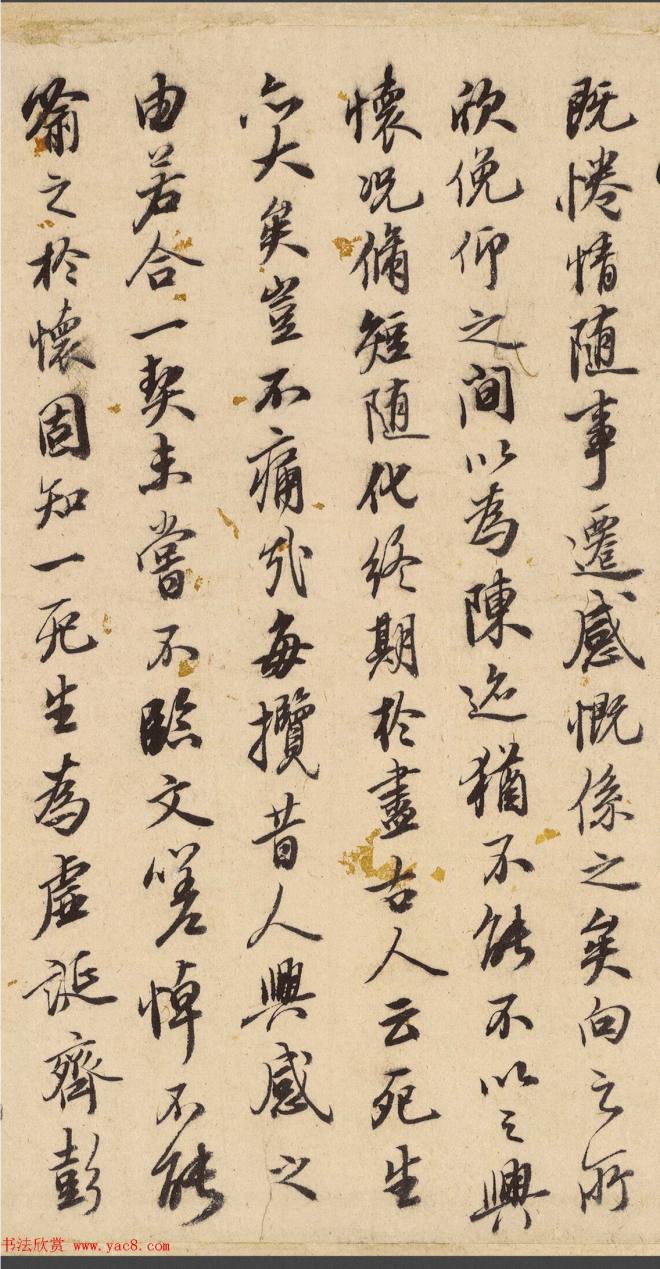 既惓情随事遷感慨係之矣向之所
欣俛仰之間以為陳迹猶不能不以之興
懷况脩短随化終期於盡古人云死生
亦大矣豈不痛哉每攬昔人興感之
由若合一契未嘗不臨文嗟悼不能
喻之於懷固知一死生為虛誕齊彭
书法欣赏 www.yac8.com